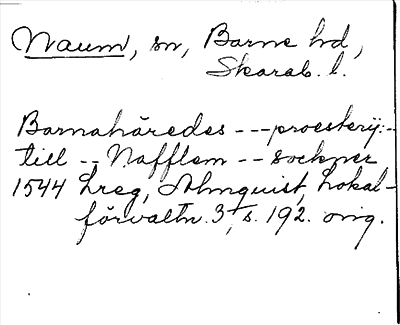 Naum, sn, Barne hd,
Skarab. l.
Barnahäredes --- proesterij:-
till -- Nafflem -- sockner
1544 Lreg, Almquist, Lokal-
förvaltn. 3, s. 192. orig.